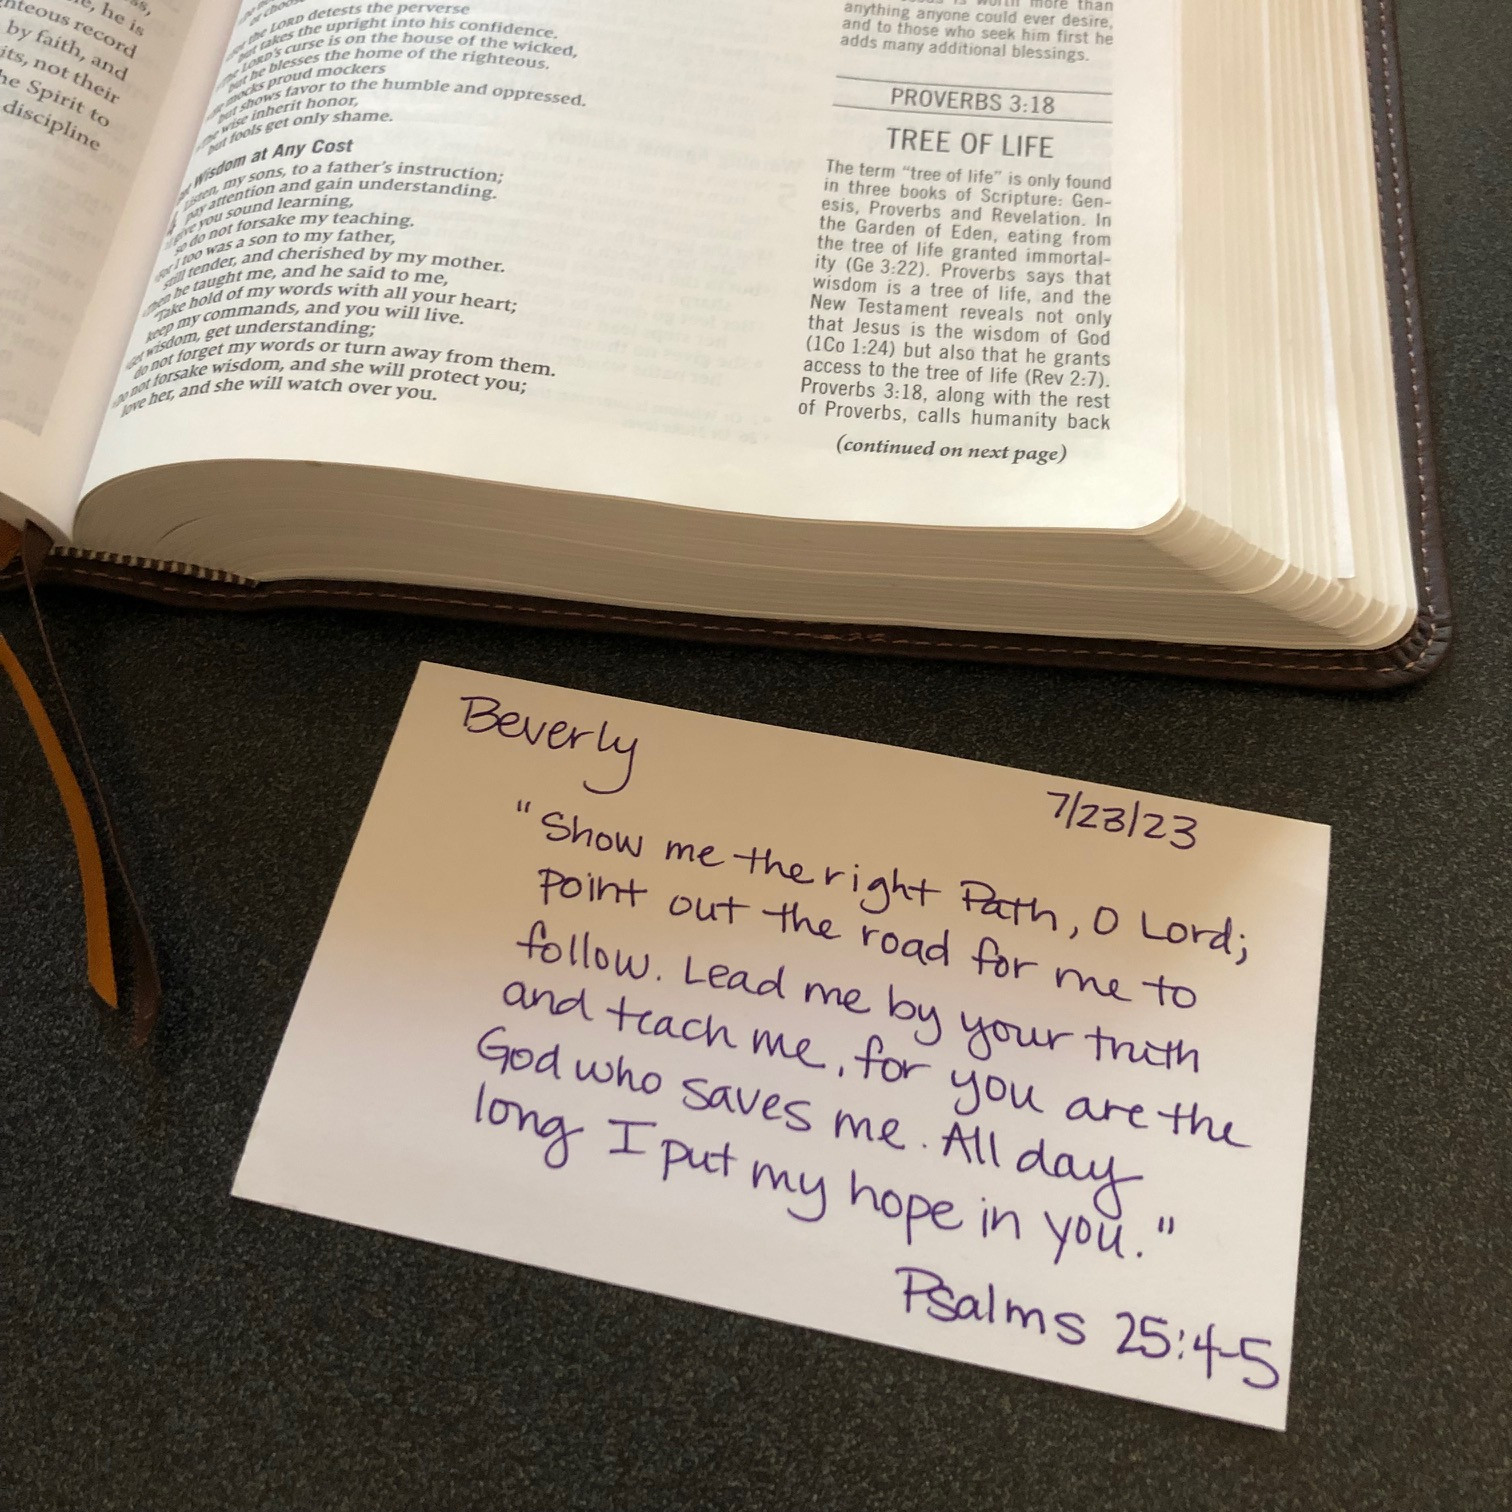 he is
righteous record
by faith, and
not their
the Spirit to
discipline
the LORD detests the perverse
but takes the upright into his confidence.
The LORD's curse is on the house of the wicked,
but he blesses the home of the righteous.
mocks proud mockers
but shows favor to the humble and oppressed.
The wise inherit honor,
but fools get only shame.
Wisdom at Any Cost
Listen, my sons, to a father's instruction;
pay attention and gain understanding.
I give you sound learning,
so do not forsake my teaching.
For I too was a son to my father,
still tender, and cherished by my mother.
Then he taught me, and he said to me,
"Take hold of my words with all your heart;
keep my commands, and you will live.
Get wisdom, get understanding;
do not forget my words or turn away from them.
Do not forsake wisdom, and she will protect you;
love her, and she will watch over you.
is worth more than
anything anyone could ever desire,
and to those who seek him first he
adds many additional blessings.
PROVERBS 3:18
TREE OF LIFE
The term "tree of life" is only found
in three books of Scripture: Gen-
esis, Proverbs and Revelation. In
the Garden of Eden, eating from
the tree of life granted immortal-
ity (Ge 3:22). Proverbs says that
wisdom is a tree of life, and the
New Testament reveals not only
that Jesus is the wisdom of God
(1Co 1:24) but also that he grants
access to the tree of life (Rev 2:7).
Proverbs 3:18, along with the rest
of Proverbs, calls humanity back
(continued on next page)
Beverly
7/23/23
"Show me the right Path, O Lord;
point out the road for me to
follow. Lead me by your truth
and teach me, for you are the
God who saves me. All day
long I put my hope in you."
Psalms 25:4-5